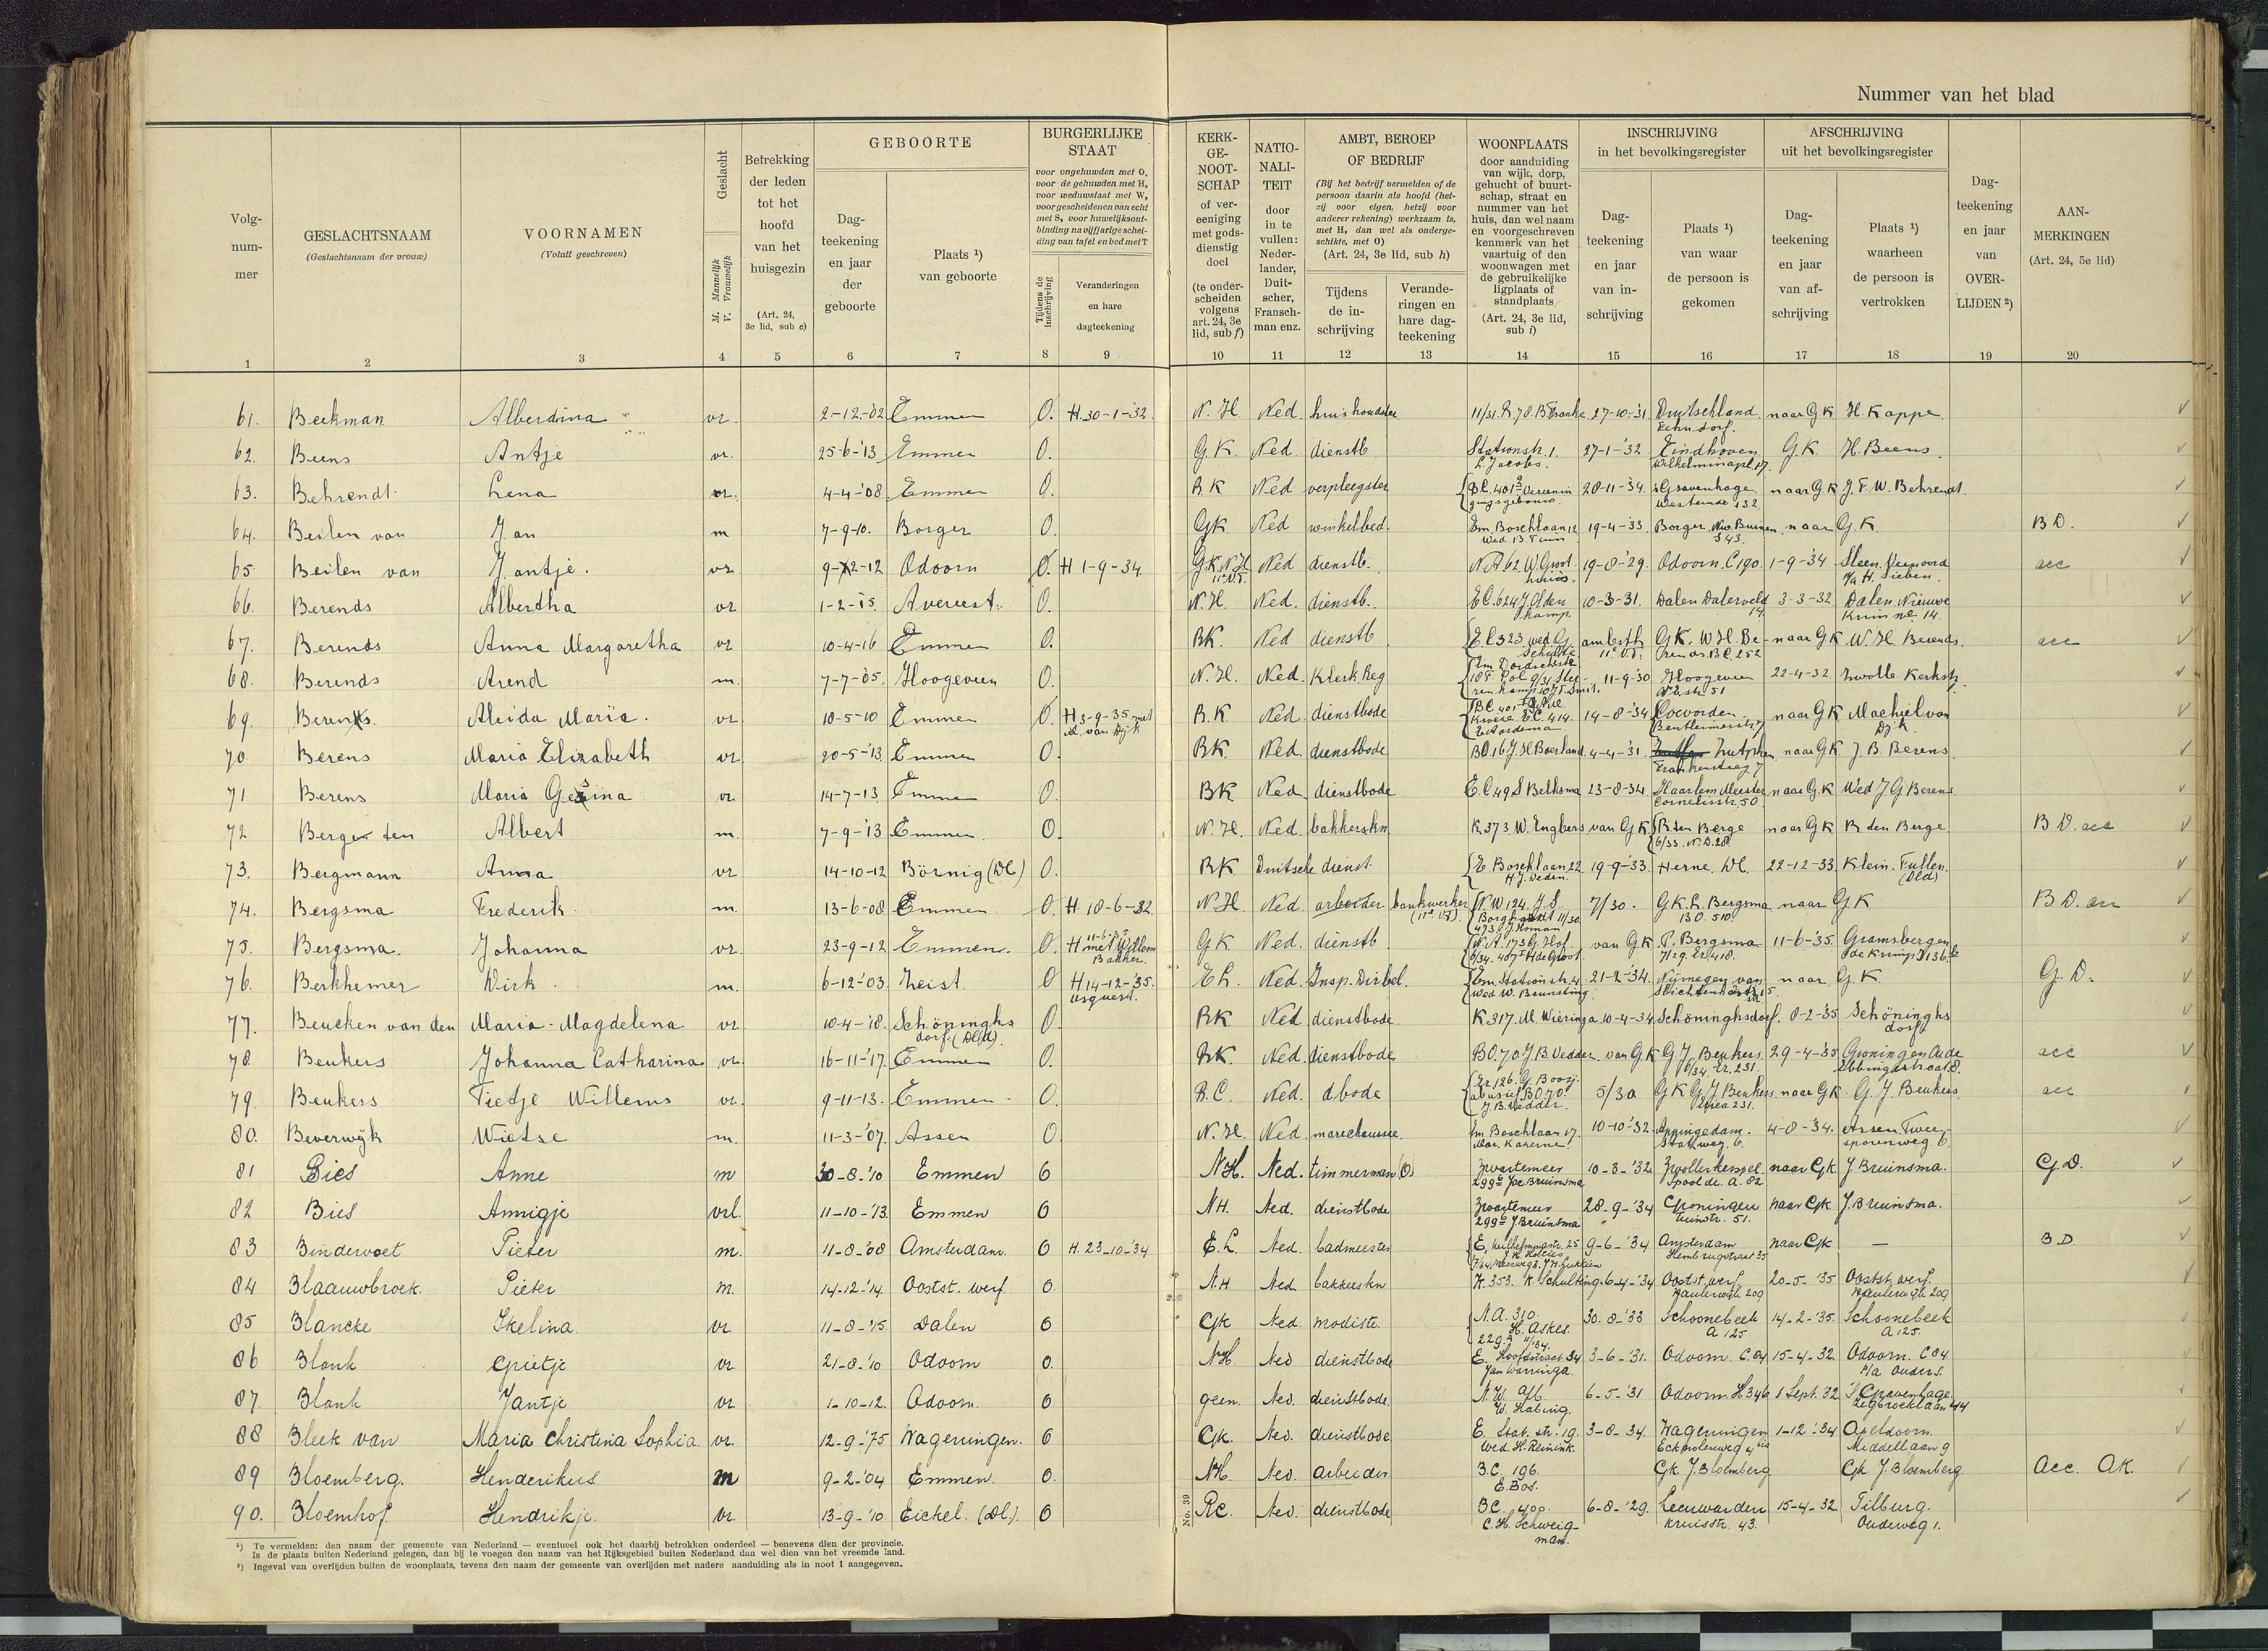 Nummer van het blad
Volgnummer
GESLACHTSNAAM
(Geslachtsnaam der vrouw)
VOORNAMEN
(Voluit geschreven)
Geslacht
M. Mannelijk
V. Vrouwelijk
Betrekking
der leden
tot het
hoofd
van het
huisgezin
(Art. 24,
3e lid, sub e)
GEBOORTE
Dag-
teekening
en jaar
der
geboorte
Plaats ¹)
van geboorte
BURGERLIJKE
STAAT
voor ongehuwden met O,
voor de gehuwden met H,
voor weduwstaat met W,
voor gescheidenen van echt
met S, voor huwelijksont-
binding na vijfjarige schei-
ding van tafel en bed met T
Tijdens de
inschrijving
Veranderingen
en hare
dagteekening
KERK-
GE-
NOOT-
SCHAP
of ver-
eeniging
met gods-
dienstig
doel
(te onder-
scheiden
volgens
art. 24, 3e
lid, sub f)
NATIO-
NALI-
TEIT
door
in te
vullen:
Neder-
lander,
Duit-
scher,
Fransch-
man enz.
AMBT, BEROEP
OF BEDRIJF
(Bij het bedrijf vermelden of de
persoon daarin als hoofd (het-
zij voor eigen, hetzij voor
anderer rekening) werkzaam is,
met H, dan wel als onderge-
schikte, met O)
(Art. 24, 3e lid, sub h)
Tijdens
de in-
schrijving
Verande-
ringen en
hare dag-
teekening
WOONPLAATS
door aanduiding
van wijk, dorp,
gehucht of buurt-
schap, straat en
nummer van het
huis, dan wel naam
en voorgeschreven
kenmerk van het
vaartuig of den
woonwagen met
de gebruikelijke
ligplaats of
standplaats
(Art. 24, 3e lid,
sub i)
INSCHRIJVING
in het bevolkingsregister
Dag-
teekening
en jaar
van in-
schrijving
Plaats ¹)
van waar
de persoon is
gekomen
AFSCHRIJVING
uit het bevolkingsregister
Dag-
teekening
en jaar
van af-
schrijving
Plaats ¹)
waarheen
de persoon is
vertrokken
Dag-
teekening
en jaar
van
OVER-
LIJDEN ²)
AAN-
MERKINGEN
(Art. 24, 5e lid)
1 2 3 4 5 6 7 8 9 10 11 12 13 14 15 16 17 18 19 20
61. Beekman Alberdina vr. 2-12-'02 Emmen O. H.30-1-'32. N.H. Ned. huishoudster 27-10-'31. Duitschland naar G K H. Kappe
62. Beens Antje vr. 25-6-'13 Emmen O. G.K. Ned. dienstb Stationstr. 1. L. Jacobs. 27-1-'32 Eindhoven Wilhelminapl. 17. G.K. H. Beens.
63. Behrendt Lena vr. 4-4-'08 Emmen O. R.K Ned verpleegster 20-11-'34. 's Gravenhage Westeinde 132 naar G K J. F. W. Behrendt.
64. Beilen van Jan m 7-9-10. Borger O. GK Ned winkelbed. Em. Boschlaan 12 19-4-'33. Borger naar G K. B D.
65 Beilen van Jantje. vr 9-12-12 Odoorn O. H 1-9-34. G.K. N.H Ned dienstb. N A 62. W. Groothuis. 19-8-'29. Odoorn. C 190. 1-9-'34 Sleen. Veenoord acc
66. Berends Albertha vr 1-2-'15. Avereest. O. N.H. Ned. dienstb. 10-3-31. Dalen Dalerveld 14 3-3-'32 Dalen. Nieuwe Krim no 14.
67. Berends Anna Margaretha vr 10-4-16 Emmen O. RK. Ned dienstb E C 323 wed. G. ambtsh. G K. W. H. Berends. B C. 252 naar G K W. H. Berends. acc
68. Berends Arend m. 7-7-'05. Hoogeveen O. N.H. Ned. Klerk Reg 11-9-'30 Hoogeveen 22-4-32 Zwolle Kerkstr.
69. Berens. Aleida Maria. vr 18-5-10 Emmen O. H 3-9-35 met M. van Dijk R.K Ned. dienstbode 14-8-'34 Coevorden Bentheimerstr. naar G K Machiel van Dijk
70 Berens Maria Elizabeth vr 20-5-'13. Emmen O. RK Ned. dienstbode 4-4-'31. Zutphen naar G K J. B. Berens.
71 Berens Maria Gesina vr. 14-7-13 Emmen O. RK Ned. dienstbode E. C 49 S Belksma 23-8-34. Haarlem Meester Cornelisstr. 50 naar G.K Wed J G Berens.
72 Berge ten Albert m. 7-9-'13 Emmen. O. N.H. Ned. bakkerskn K 373. W. Engbers van G K R. ten Berge 6/33. N.D. 28. naar G K R den Berge B D. acc
73. Bergmann Anna vr 14-10-12 Börnig (Dl) O. RK Duitsche dienst. E. Boschlaan 22 19-9-'33. Herne. Dl. 22-12-33. Klein. Fullen. (Dld)
74. Bergsma Frederik. m. 13-6-08 Emmen O. H. 18-6-32 N.H. Ned. arbeider bankwerker 7/30. G K. L. Bergsma B O. 510. naar G K B D. acc
75. Bergsma. Johanna vr. 23-9-12 Emmen. O. H 11-6-35 met Willem Bakker. G K Ned. dienstb. van G K. P. Bergsma 11-6-'35. Gramsbergen
76. Berkhemer Dirk m. 6-12-'03 Zeist. O H 14-12-'35. Usquert. E L. Ned. Insp. Dir. bel. Em. Stationstr. 4. wed W. Brunsting 21-2-'34. Nijmegen van naar G K. G. D.
77. Beucken van den Maria-Magdelena vr 10-4-'18. Schöninghsdorf. (Dld). O. RK Ned dienstbode K 317. M. Wieringa 10-4-34. Schöninghsdorf. 8-2-'35 Schöninghsdorf
78. Beukers Johanna Catharina vr. 16-11-'17. Emmen O. RK. Ned. dienstbode B O. 70. J. B. Vedder. van G K G J. Beukers. 6/34. Er. 231. 29-4-'35 Groningen Oude Ebbingestraat 8. acc
79. Beukers Tietje Willems vr. 9-11-13. Emmen. O. R.C. Ned. dbode 5/30 G K G. J. Beukers. Erica 231. naar G K. G. J. Beukers. acc
80. Beverwijk Wietse m. 11-3-'07. Assen O. N.H. Ned marechaussee. Em Boschlaan 17. Mar. Kazerne. 10-10-'32. Appingedam. Stat. weg. 6. 4-8-'34. Assen. Tweesporenweg 6.
81 Bies Anne m 30-8-'10 Emmen O N.H. Ned. timmerman (O) Zwartemeer 10-3-'32 Zwollerkerspel Spoolde. A. 82 naar GK. J. Bruinsma. G.D.
82 Bies Annigje vrl. 11-10-'13. Emmen O NH. Ned. dienstbode Zwartemeer J. Bruinsma 28-9-'34 Groningen Tuinstr. 51. naar GK. J. Bruinsma.
83 Bindervoet Pieter m. 11-8-'08 Amsterdam. O H. 23-10-'34 E.L. Ned. badmeester E. Wilhelminastr. 25 9-6-'34 Amsterdam naar GK — B.D.
84 Blaauwbroek. Pieter m. 14-12-'14. Ooststw. werf. O. N.H Ned. bakkerskn K. 353. K. Schulting. 6-4-'34 Ooststw. werf. 20-5-'35 Ooststw. werf.
85 Blancke Ikelina. vr 11-8-'15. Dalen O GK Ned. modiste. N.A. 310. H. Askes. 30-8-'33 Schoonebeek A 125 14-2-'35. Schoonebeek A 125.
86 Blank Grietje vr 21-8-'10 Odoorn O. NH. Ned dienstbode E. Hoofdstraat 34 3-6-'31. Odoorn C. 84 15-4-'32. Odoorn. C 84 P/a Ouders.
87. Blank Jantje vr 1-10-12. Odoorn. O. geen. Ned. dienstbode. W. Habing. 6-5-'31 Odoorn. H 346 1 Sept. 32 's Gravenhage.
88 Bleek van Maria Christina Sophia. vr. 12-9-'75 Wageningen. O GK. Ned. dienstbode E. Stat. str. 19. Wed. H. Reinink. 3-8-34. Wageningen 1-12-'34 Apeldoorn. Middellaan 9
89 Bloemberg. Henderikus m 9-2-'04 Emmen. O. NH. Ned. arbeider B.C. 196. E. Bos. GK. J. Bloemberg GK J. Bloemberg Acc. AK.
90. Bloemhof. Hendrikje. vr. 13-9-'10 Eickel. (Dl). O Rc. Ned. dienstbode BC. 400. C. H. Schweigman. 6-8-'29. Leeuwarden Kruisstr. 43. 15-4-32 Tilburg. Oudeweg 1.
No. 39
¹) Te vermelden: den naam der gemeente van Nederland — eventueel ook het daarbij betrokken onderdeel — benevens dien der provincie.
Is de plaats buiten Nederland gelegen, dan bij te voegen den naam van het Rijksgebied buiten Nederland dan wel dien van het vreemde land.
²) Ingeval van overlijden buiten de woonplaats, tevens den naam der gemeente van overlijden met nadere aanduiding als in noot 1 aangegeven.